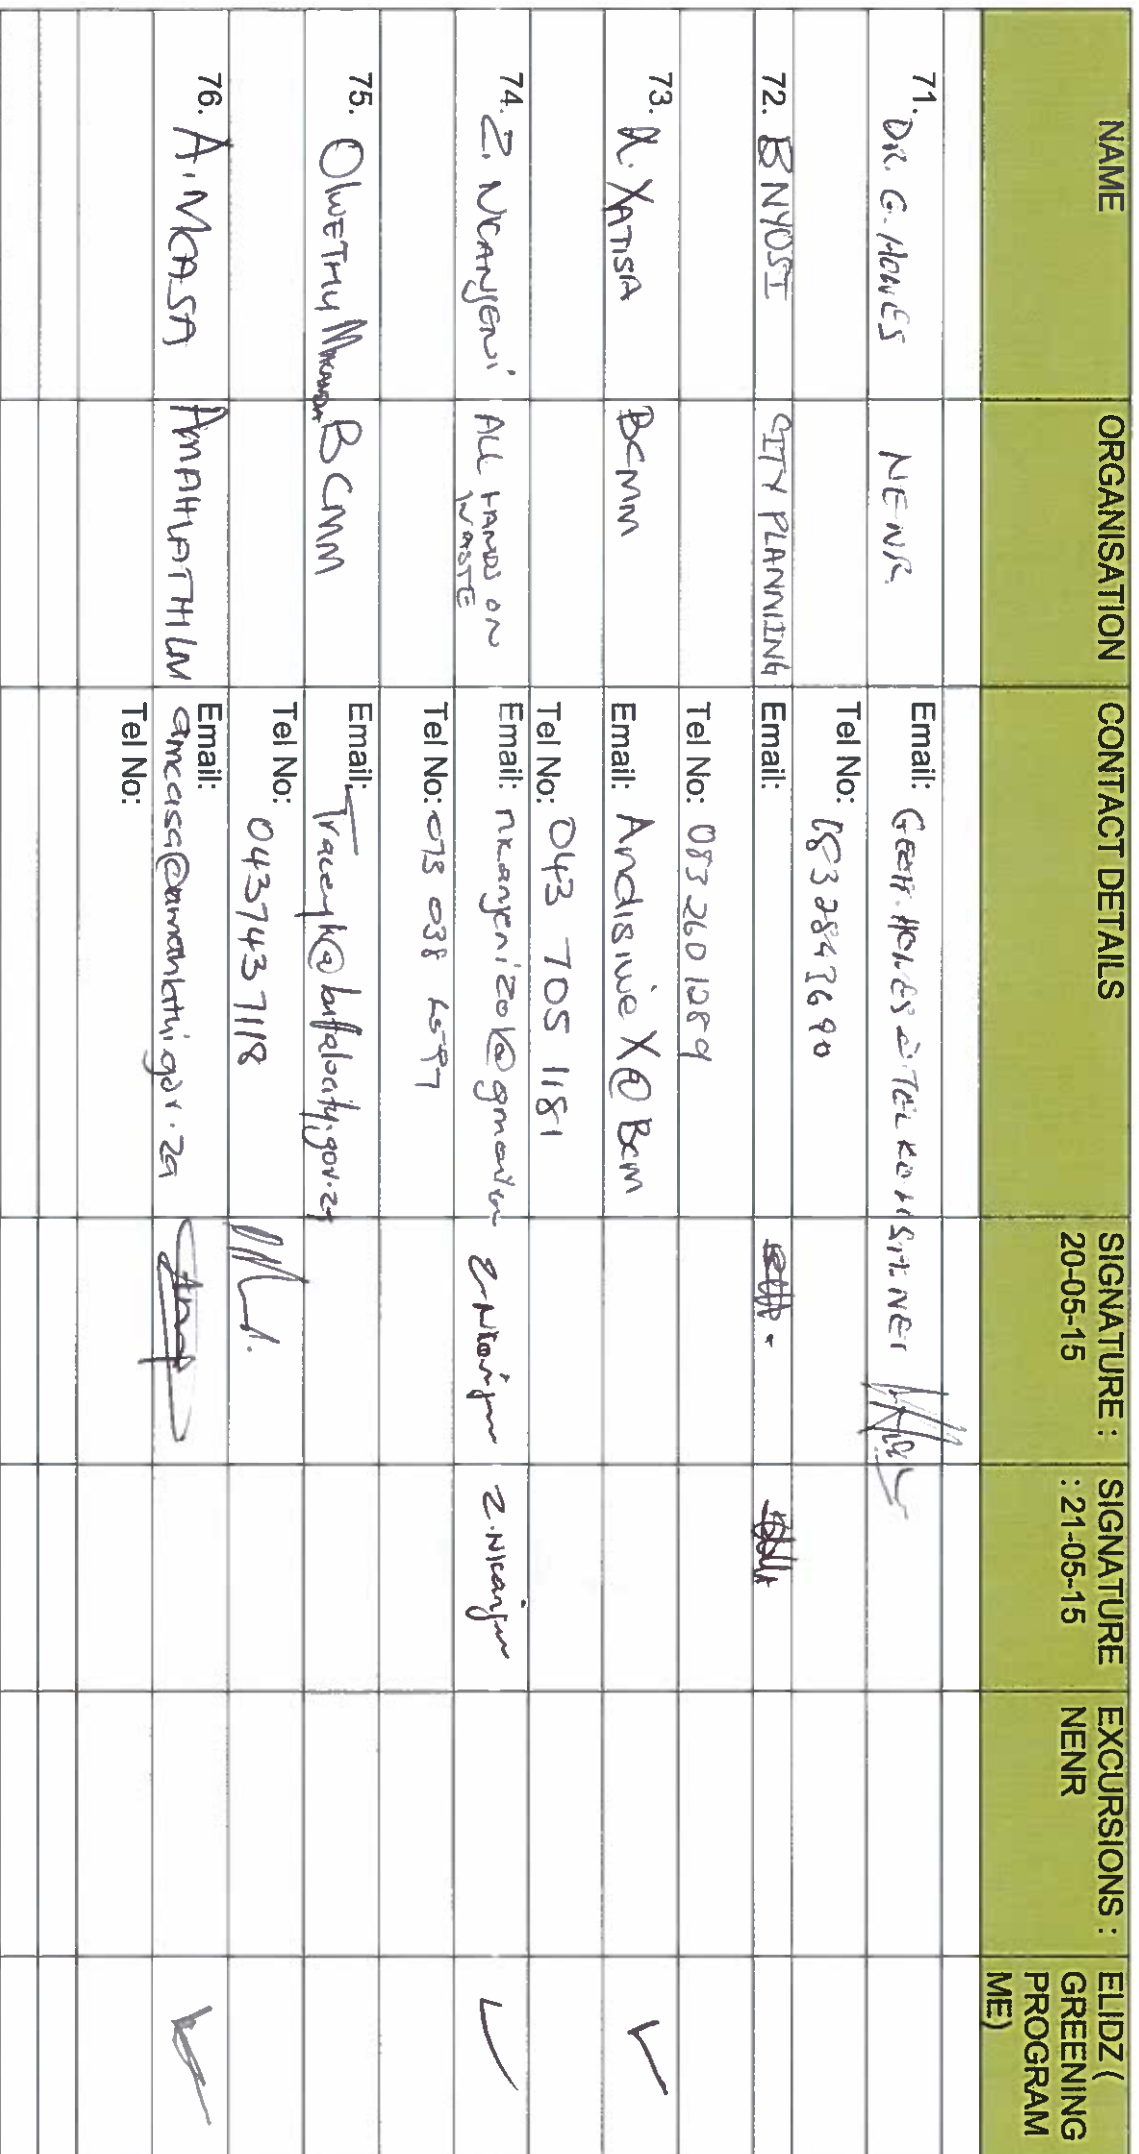 NAME
ORGANISATION
CONTACT DETAILS
SIGNATURE :
20-05-15
SIGNATURE
: 21-05-15
EXCURSIONS :
NENR
ELIDZ (
GREENING
PROGRAM
ME)
71. DR. G. NENR Email:
Tel No:
72. B NYOSI CITY PLANNING Email:
Tel No: 083 260 1289
73. A. XATISA BCMM Email: Andisiwe X@ Bcm
Tel No: 043 705 1181
74. Z. NKANJENI ALL HANDS ON
WASTE
Email: nkanjenizok@gmail.com
Tel No: 073 038
75. OLWETHU BCMM Email: Traceyk@buffalocity.gov.za
Tel No: 0437437118
76. A. MCASA AMAHLATHI LM Email: amcasa@amahlathi.gov.za
Tel No: